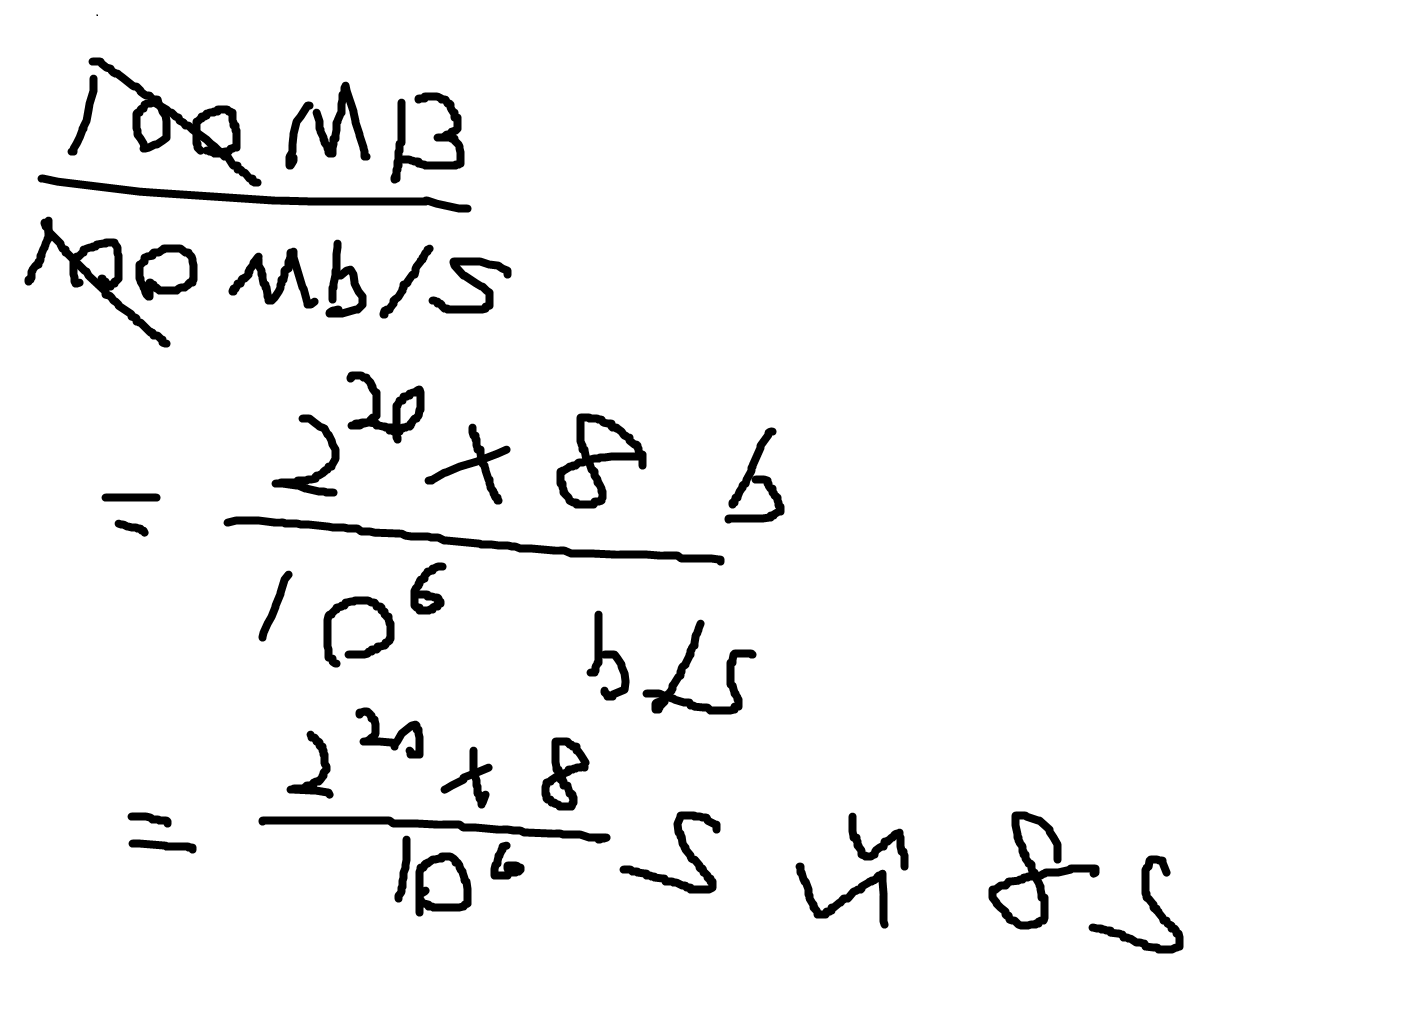 100 MB
100 Mb/s
= 2^20 × 8 b
10^6 b/s
= 2^20 × 8
10^6 s ≈ 8s